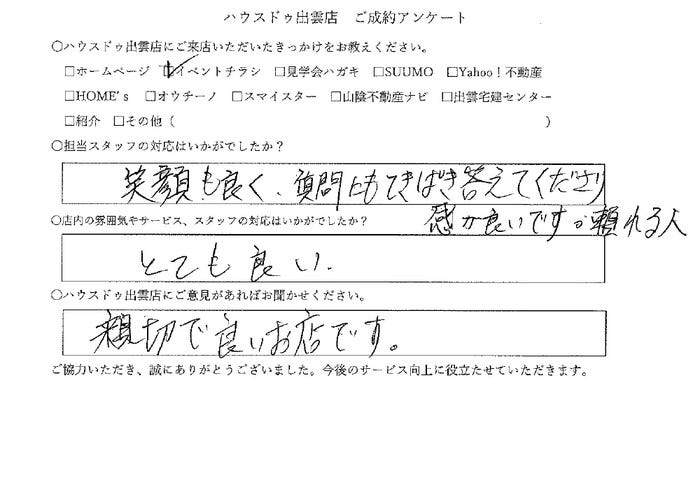 ハウスドゥ出雲店　ご成約アンケート
○ハウスドゥ出雲店にご来店いただいたきっかけをお教えください。
□ホームページ　☑イベントチラシ　□見学会ハガキ　□SUUMO　□Yahoo！不動産
□HOME's　□オウチーノ　□スマイスター　□山陰不動産ナビ　□出雲宅建センター
□紹介　□その他（　　　　　　　　　　　　　　　　　　　　　　　　　　　）
○担当スタッフの対応はいかがでしたか？
笑顔も良く、質問にもてきぱき答えてくださり
感が良いです。頼れる人
○店内の雰囲気やサービス、スタッフの対応はいかがでしたか？
とても良い.
○ハウスドゥ出雲店にご意見があればお聞かせください。
親切で良いお店です。
ご協力いただき、誠にありがとうございました。今後のサービス向上に役立たせていただきます。